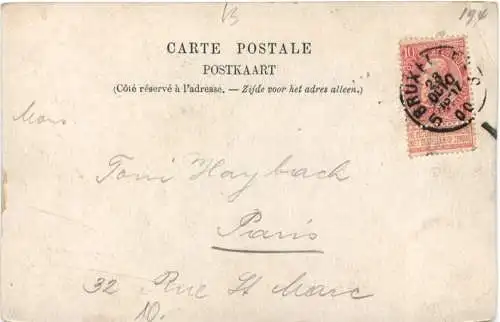 CARTE POSTALE
POSTKAART
(Côté réservé à l'adresse. — Zijde voor het adres alleen.)
10
Mons.
Toni Haybach
Paris
32 Rue St Marc
10.